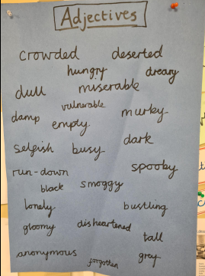 Adjectives
crowded deserted
hungry dreary
dull miserable
vulnerable
damp empty murky
selfish busy dark
run-down spooky
black smoggy
lonely bustling
gloomy disheartened
tall
anonymous forgotten grey